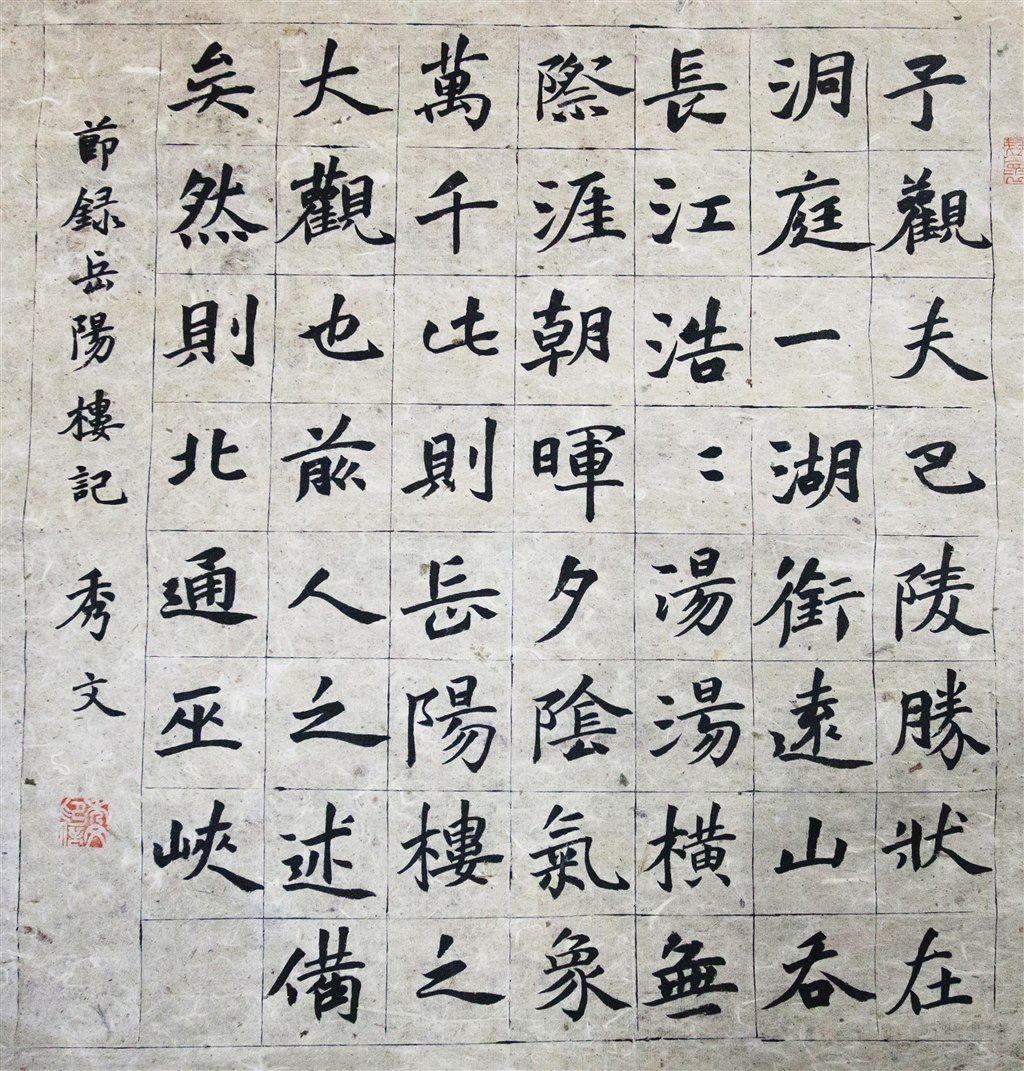 予觀夫巴陵勝狀在
洞庭一湖銜遠山吞
長江浩〻湯湯橫無
際涯朝暉夕陰氣象
萬千此則岳陽樓之
大觀也前人之述備
矣然則北通巫峽
節録岳陽樓記 秀文